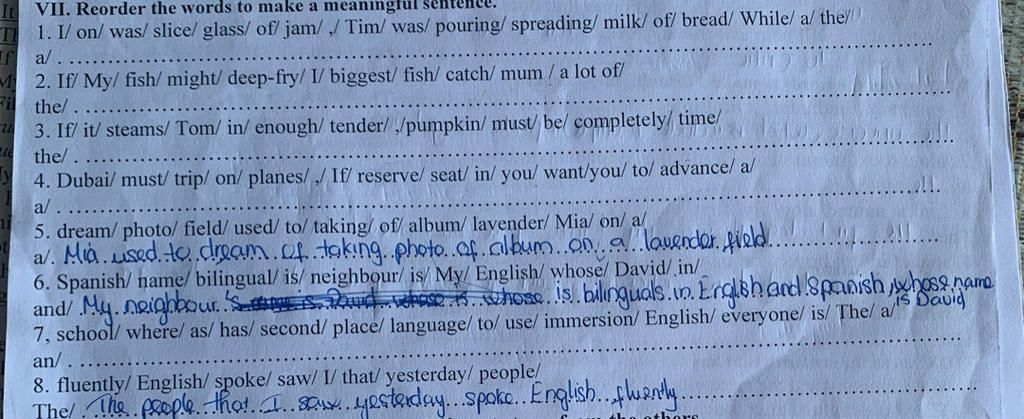 VII. Reorder the words to make a meaningful sentence.
1. I/ on/ was/ slice/ glass/ of/ jam/ ,/ Tim/ was/ pouring/ spreading/ milk/ of/ bread/ While/ a/ the/
a/ .
2. If/ My/ fish/ might/ deep-fry/ I/ biggest/ fish/ catch/ mum / a lot of/
the/ .
3. If/ it/ steams/ Tom/ in/ enough/ tender/ ,/pumpkin/ must/ be/ completely/ time/
the/ .
4. Dubai/ must/ trip/ on/ planes/ ,/ If/ reserve/ seat/ in/ you/ want/you/ to/ advance/ a/
a/ .
5. dream/ photo/ field/ used/ to/ taking/ of/ album/ lavender/ Mia/ on/ a/
a/. Mia used to dream of taking photo of album on a lavender field
6. Spanish/ name/ bilingual/ is/ neighbour/ is/ My/ English/ whose/ David/ in/
and/ My neighbour is bilinguals in English and Spanish, whose name
is David
7, school/ where/ as/ has/ second/ place/ language/ to/ use/ immersion/ English/ everyone/ is/ The/ a/
an/ .
8. fluently/ English/ spoke/ saw/ I/ that/ yesterday/ people/
The/ The people that I saw yesterday spoke English fluently